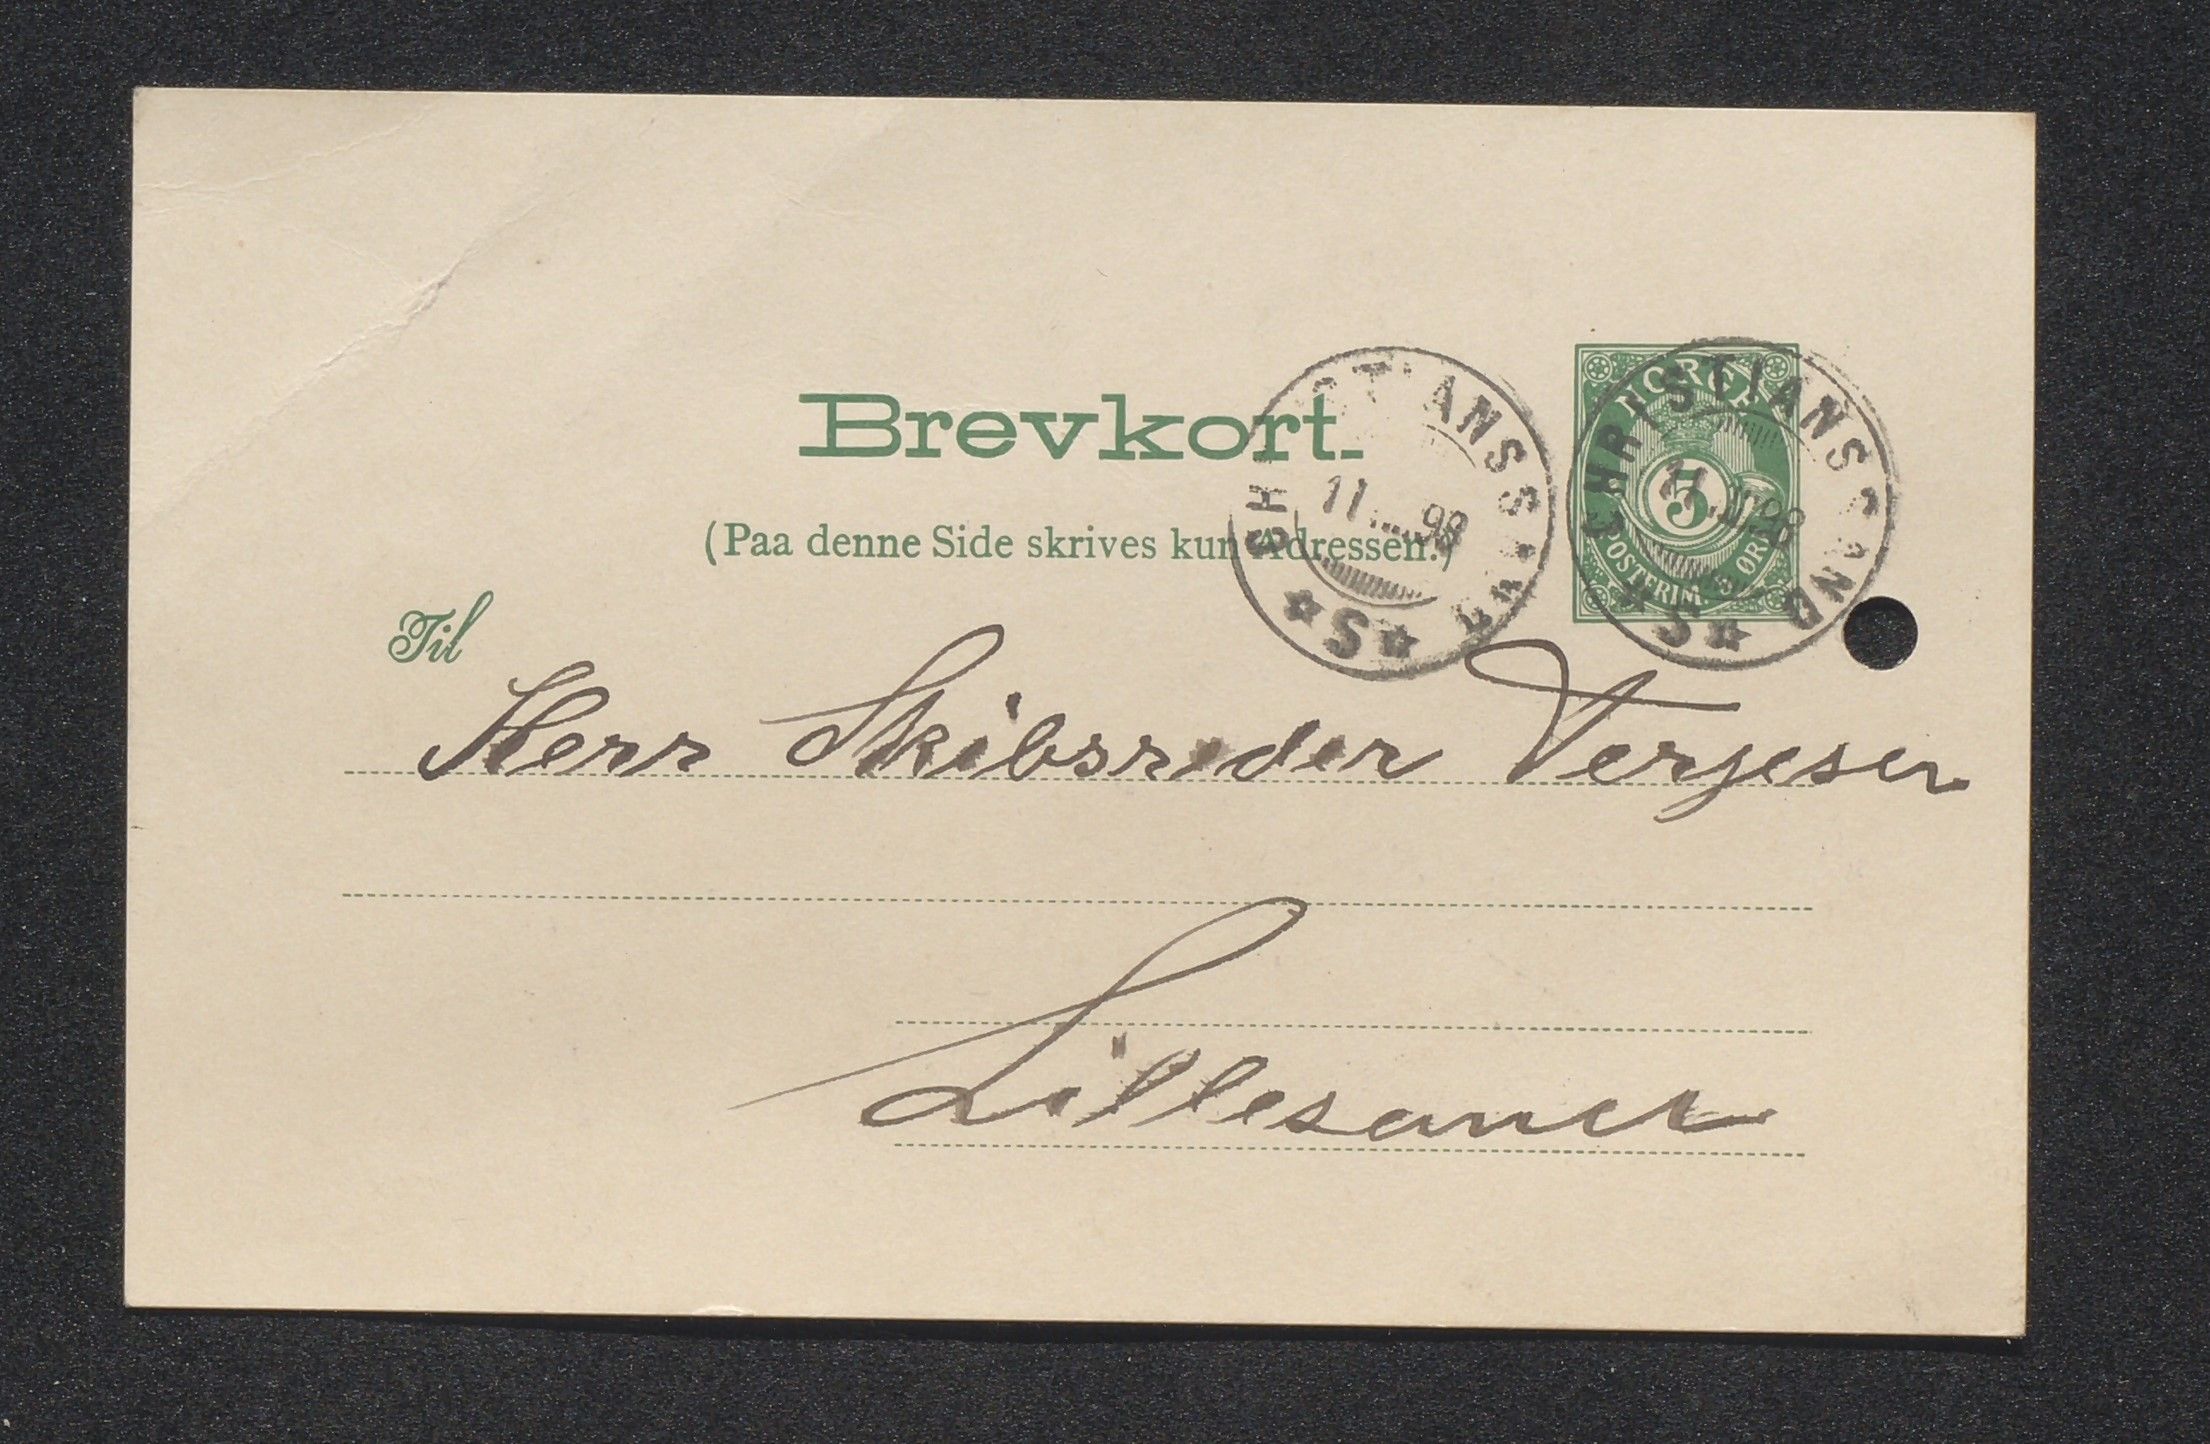 Brevkort.
(Paa denne Side skrives kun Adressen.)
NORGE
5
POSTFRIM. 5 ØRE
CHRISTIANSSAND
11 98
S
CHRISTIANSSAND
11.II.98
S
Til
Herr Skibsreder Terjesen
Lillesand